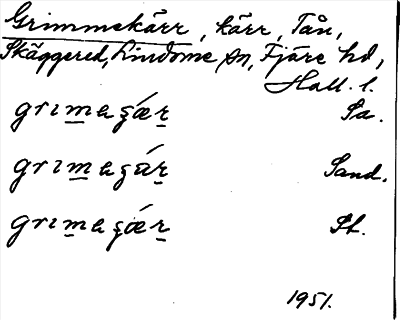 Grimmekärr, kärr, Tån,
Skäggered, Lindome sn, Fjäre hd,
Hall. l.
grım̲aʂǽr̲ Sa.
grım̲aʂár̲ Sand.
grım̲aʂǽr̲ St.
1951.